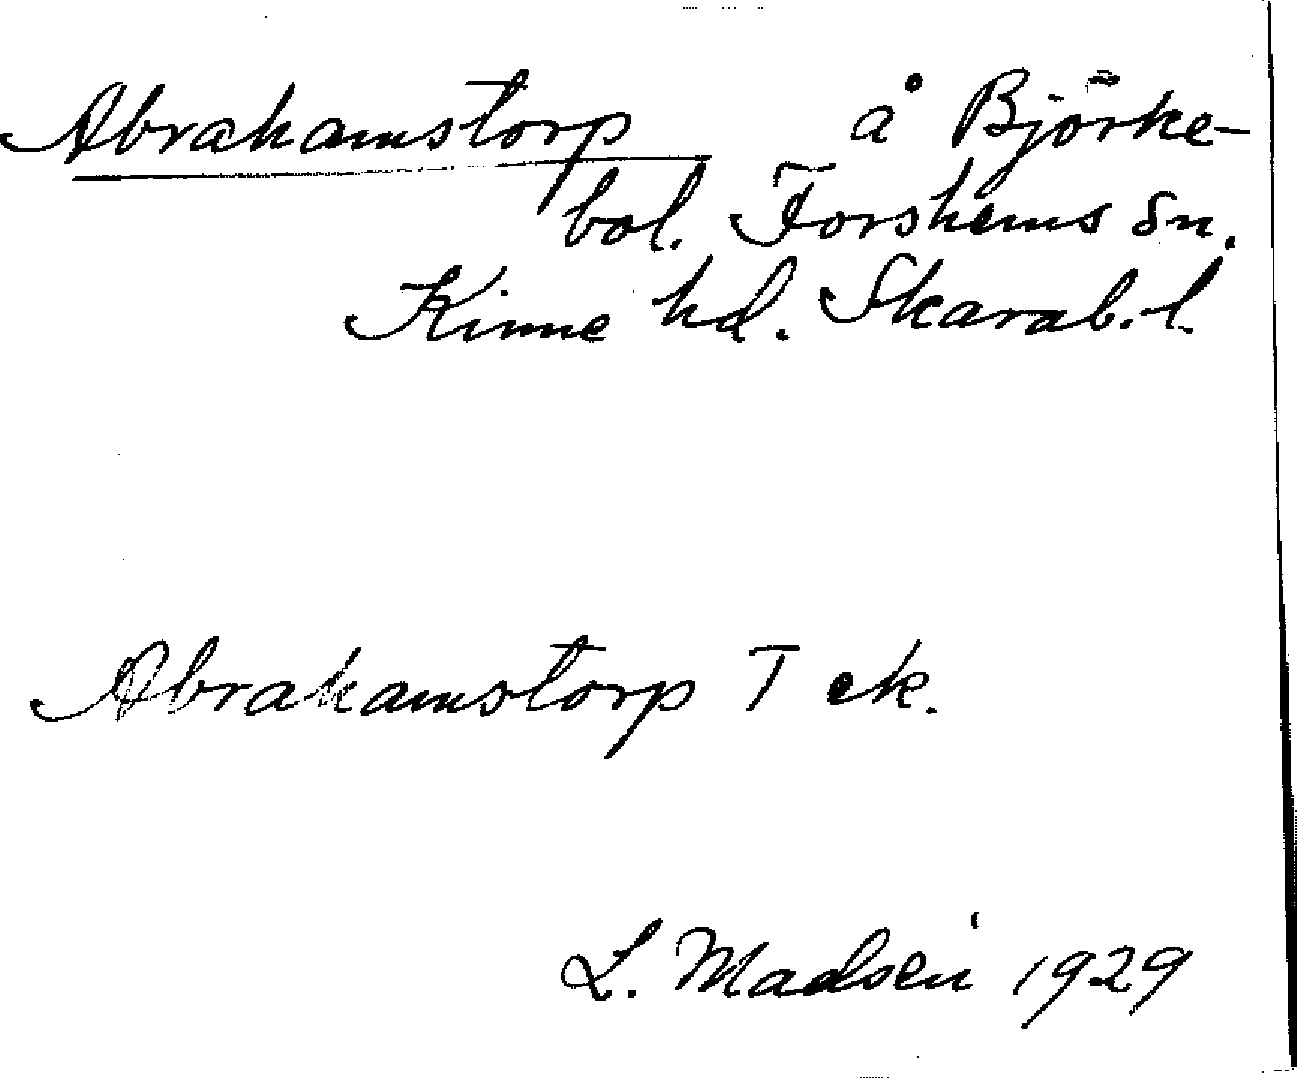 Abrahamstorp å Björke-
bol. Forshems sn.
Kinne hd. Skarab. l.
Abrahamstorp T ek.
L. Madsén 1929